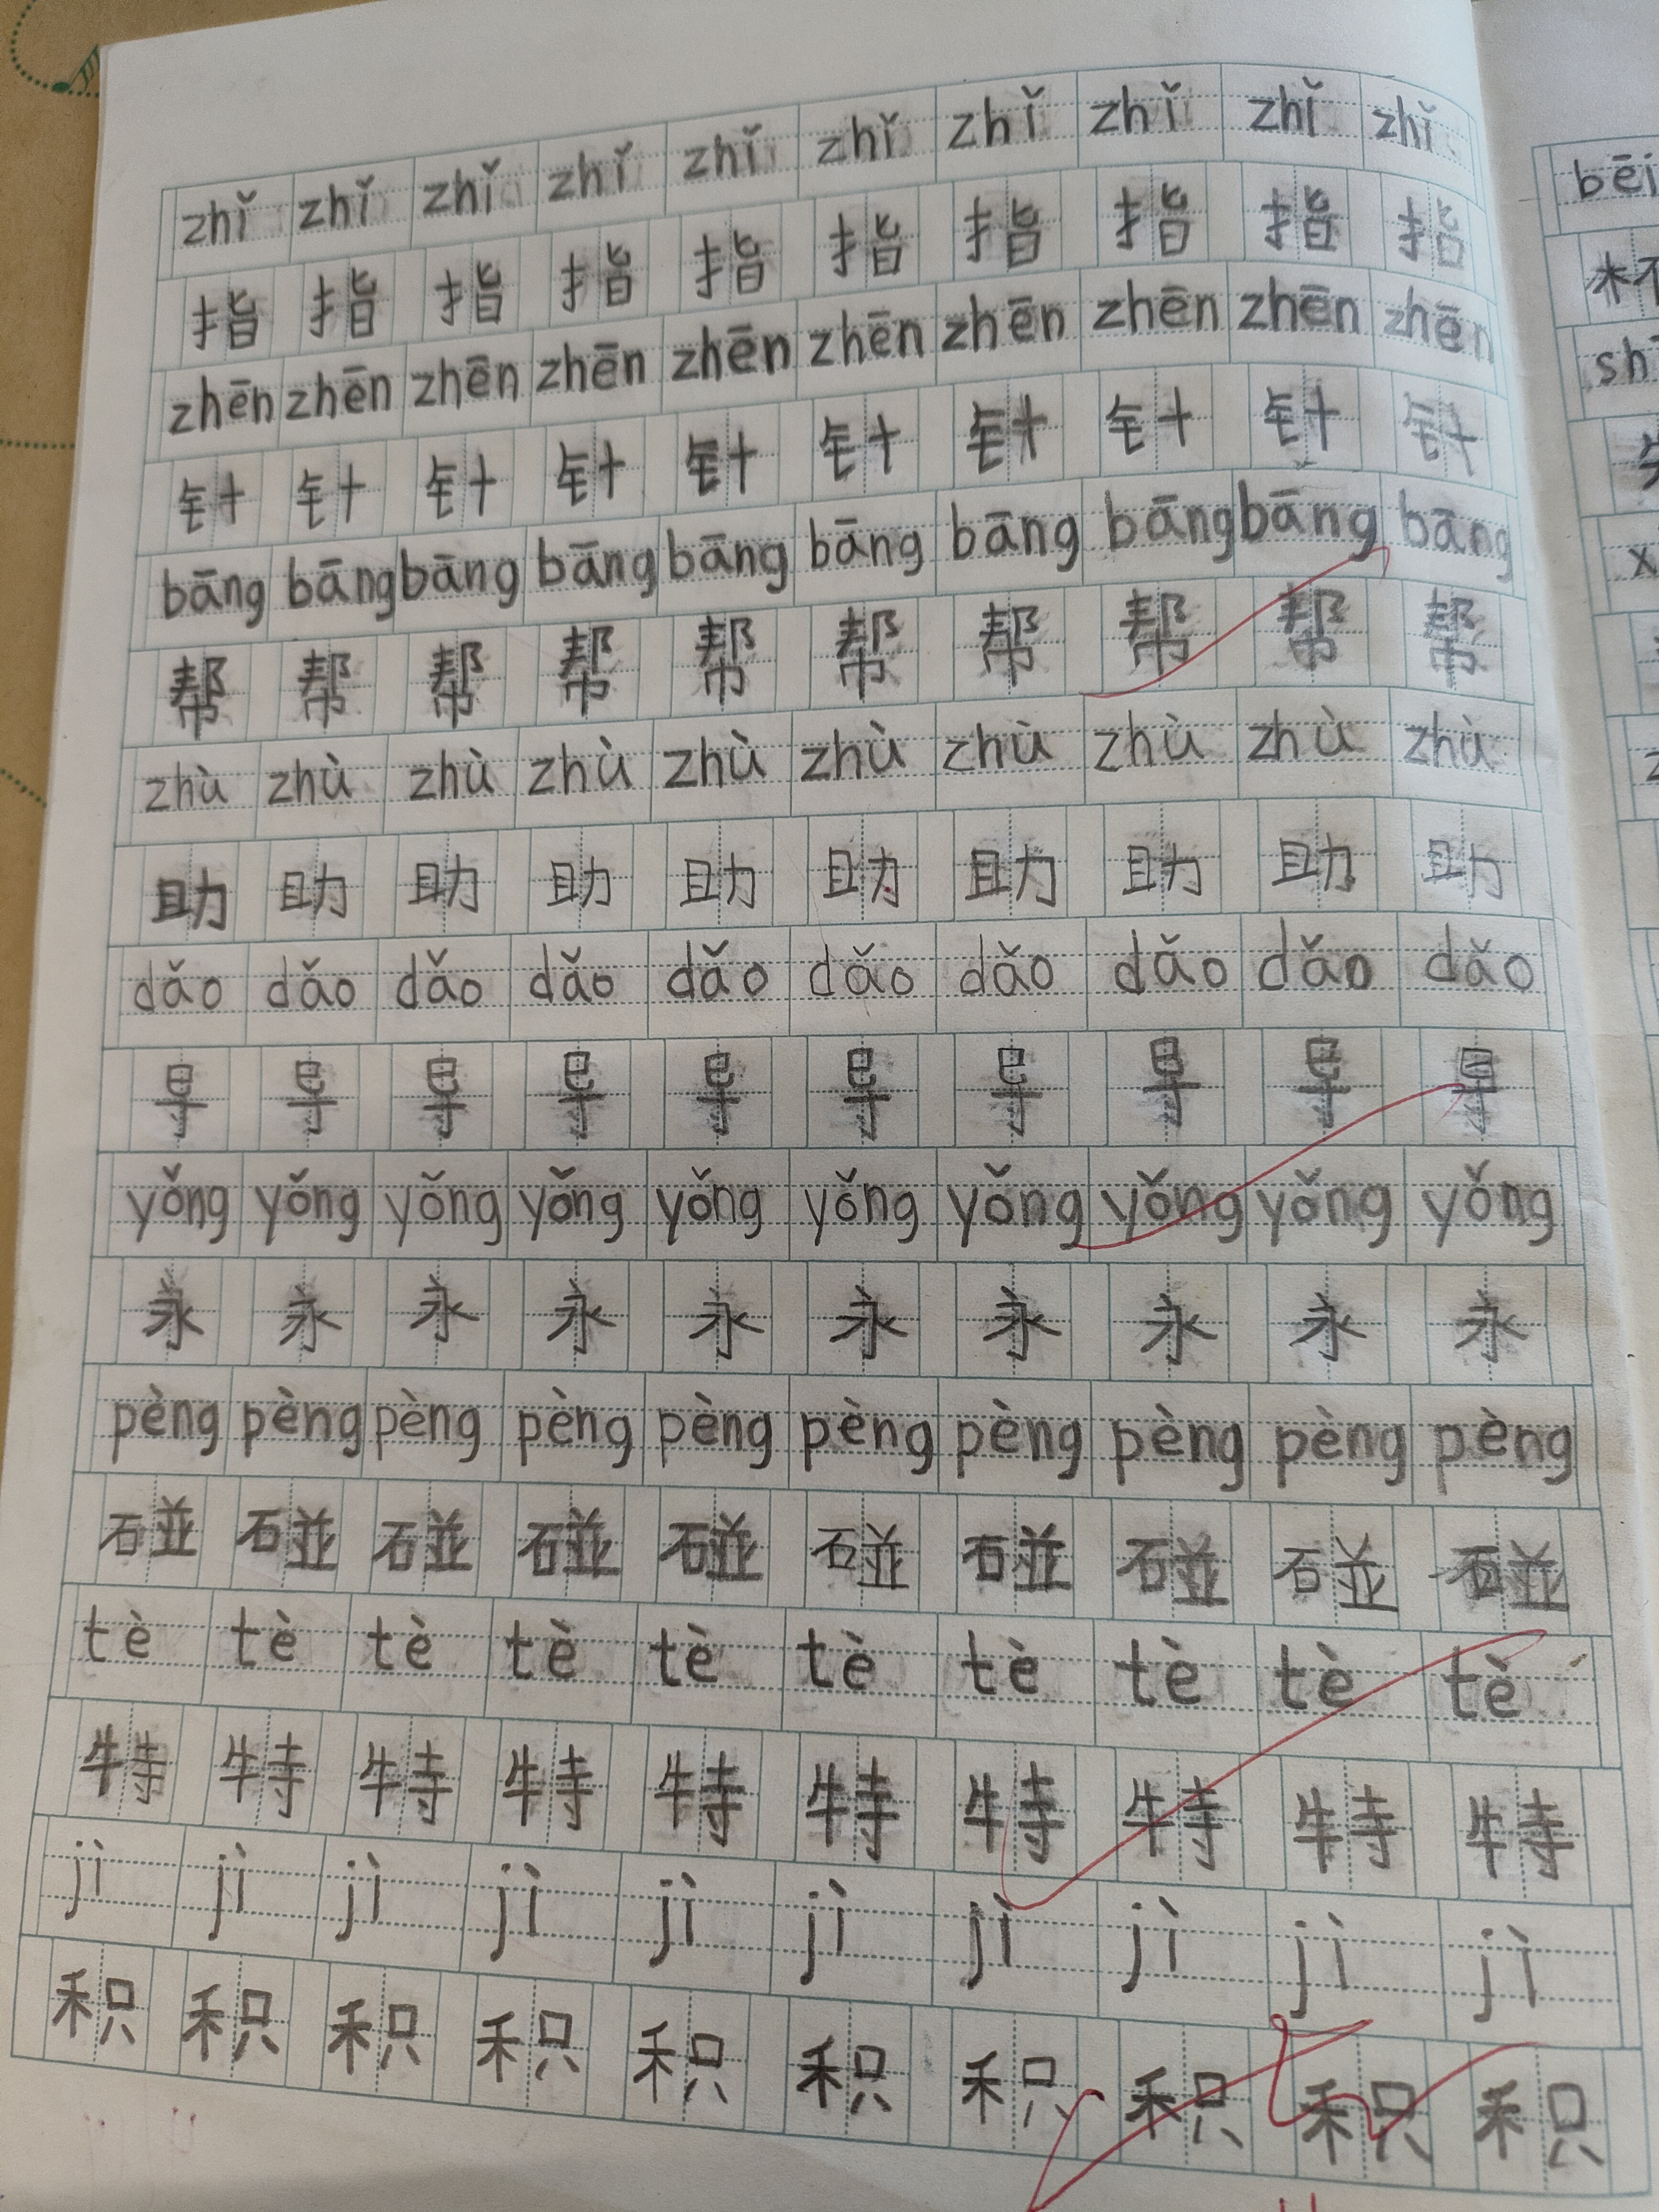 zhǐ zhǐ zhǐ zhǐ zhǐ zhǐ zhǐ zhǐ zhǐ zhǐ
指 指 指 指 指 指 指 指 指 指
zhēn zhēn zhēn zhēn zhēn zhēn zhēn zhēn zhēn zhēn
针 针 针 针 针 针 针 针 针 针
bāng bāng bāng bāng bāng bāng bāng bāng bāng bāng
帮 帮 帮 帮 帮 帮 帮 帮 帮 帮
zhù zhù zhù zhù zhù zhù zhù zhù zhù zhù
助 助 助 助 助 助 助 助 助 助
dǎo dǎo dǎo dǎo dǎo dǎo dǎo dǎo dǎo dǎo
导 导 导 导 导 导 导 导 导 导
yǒng yǒng yǒng yǒng yǒng yǒng yǒng yǒng yǒng yǒng
永 永 永 永 永 永 永 永 永 永
pèng pèng pèng pèng pèng pèng pèng pèng pèng pèng
碰 碰 碰 碰 碰 碰 碰 碰 碰 碰
tè tè tè tè tè tè tè tè tè tè
特 特 特 特 特 特 特 特 特 特
jì jì jì jì jì jì jì jì jì jì
积 积 积 积 积 积 积 积 积 积
bēi